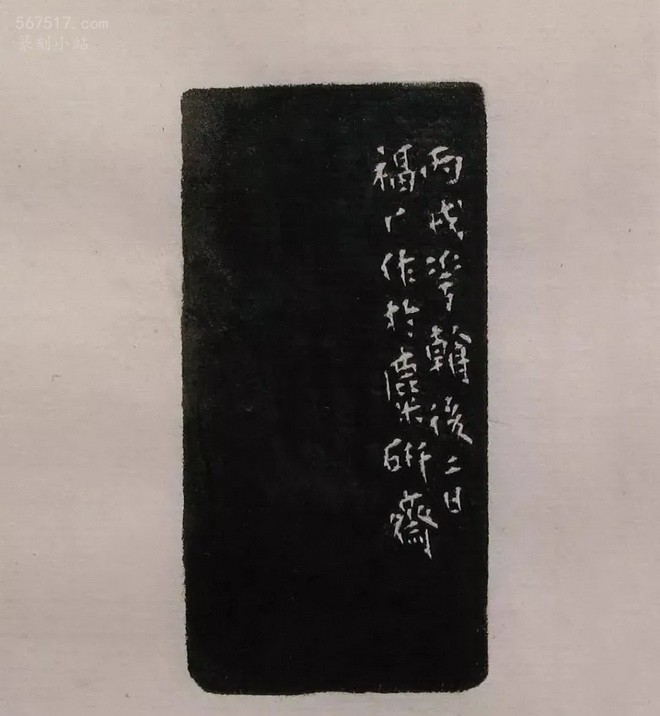 567517.com
篆刻小站
丙戌花朝後二日
福厂作於麋研齋